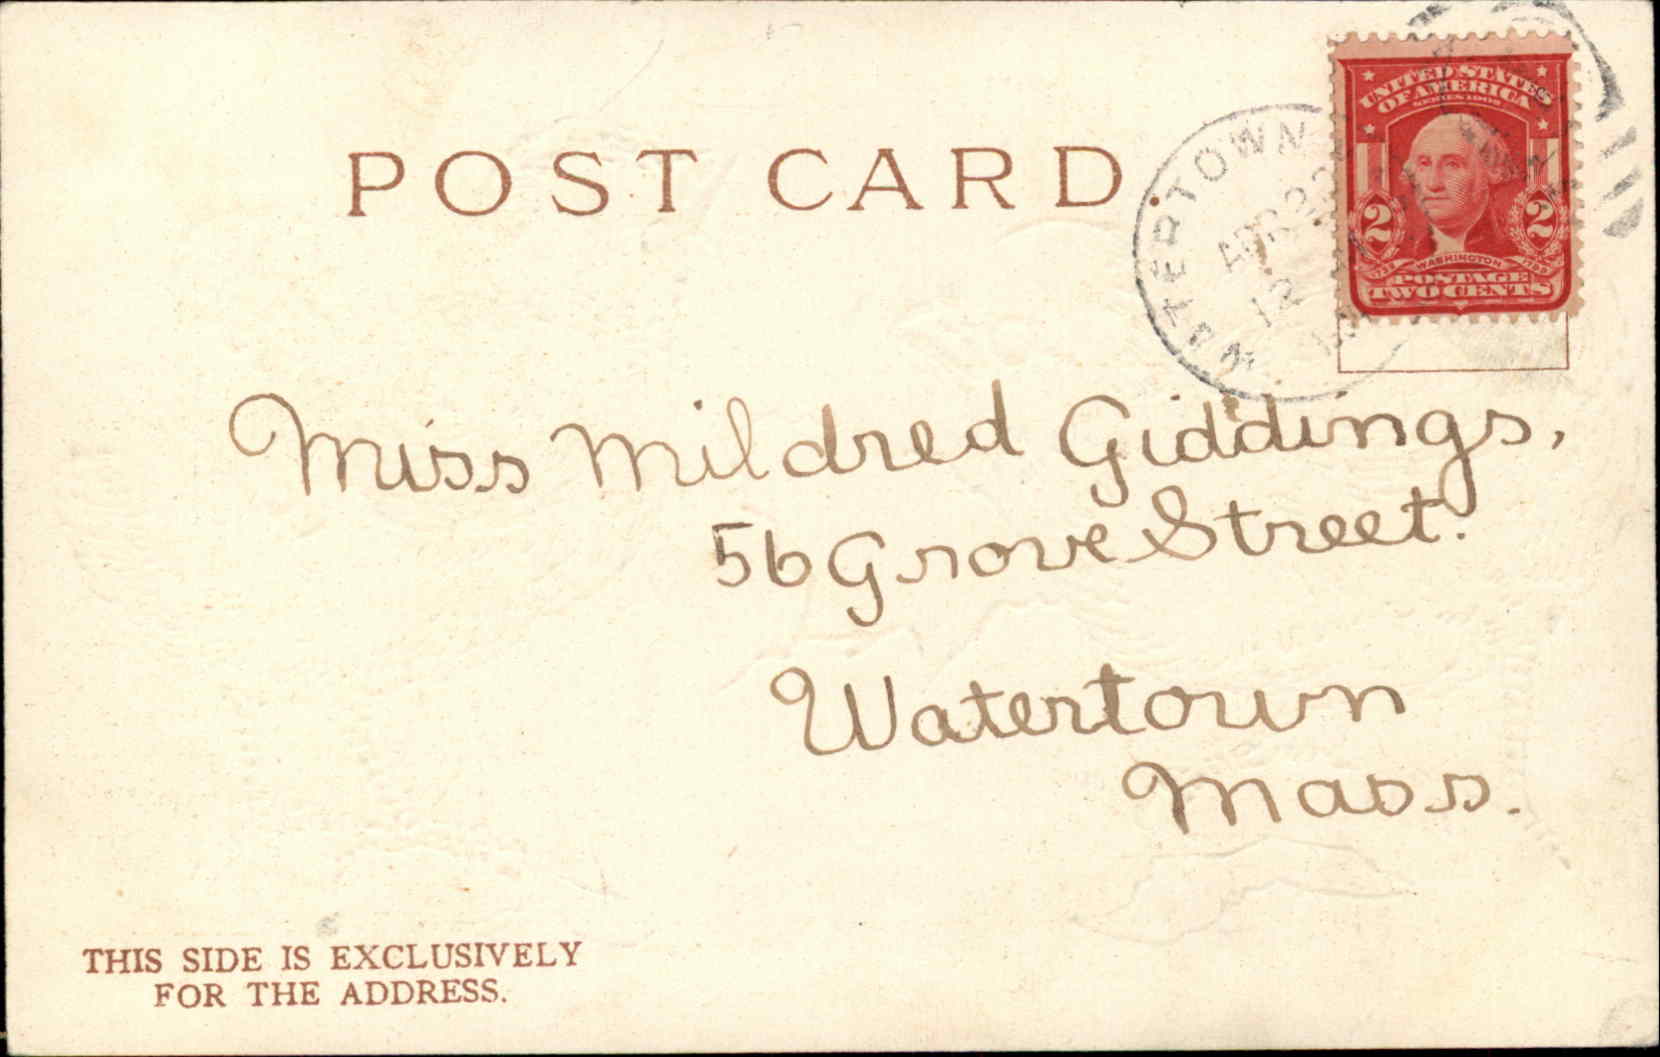 POST CARD.
WATERTOWN
APR 22
12
UNITED STATES
OF AMERICA
SERIES 1902
2 2
1732 WASHINGTON 1799
POSTAGE
TWO CENTS
Miss Mildred Giddings,
56 Grove Street.
Watertown
Mass.
THIS SIDE IS EXCLUSIVELY
FOR THE ADDRESS.